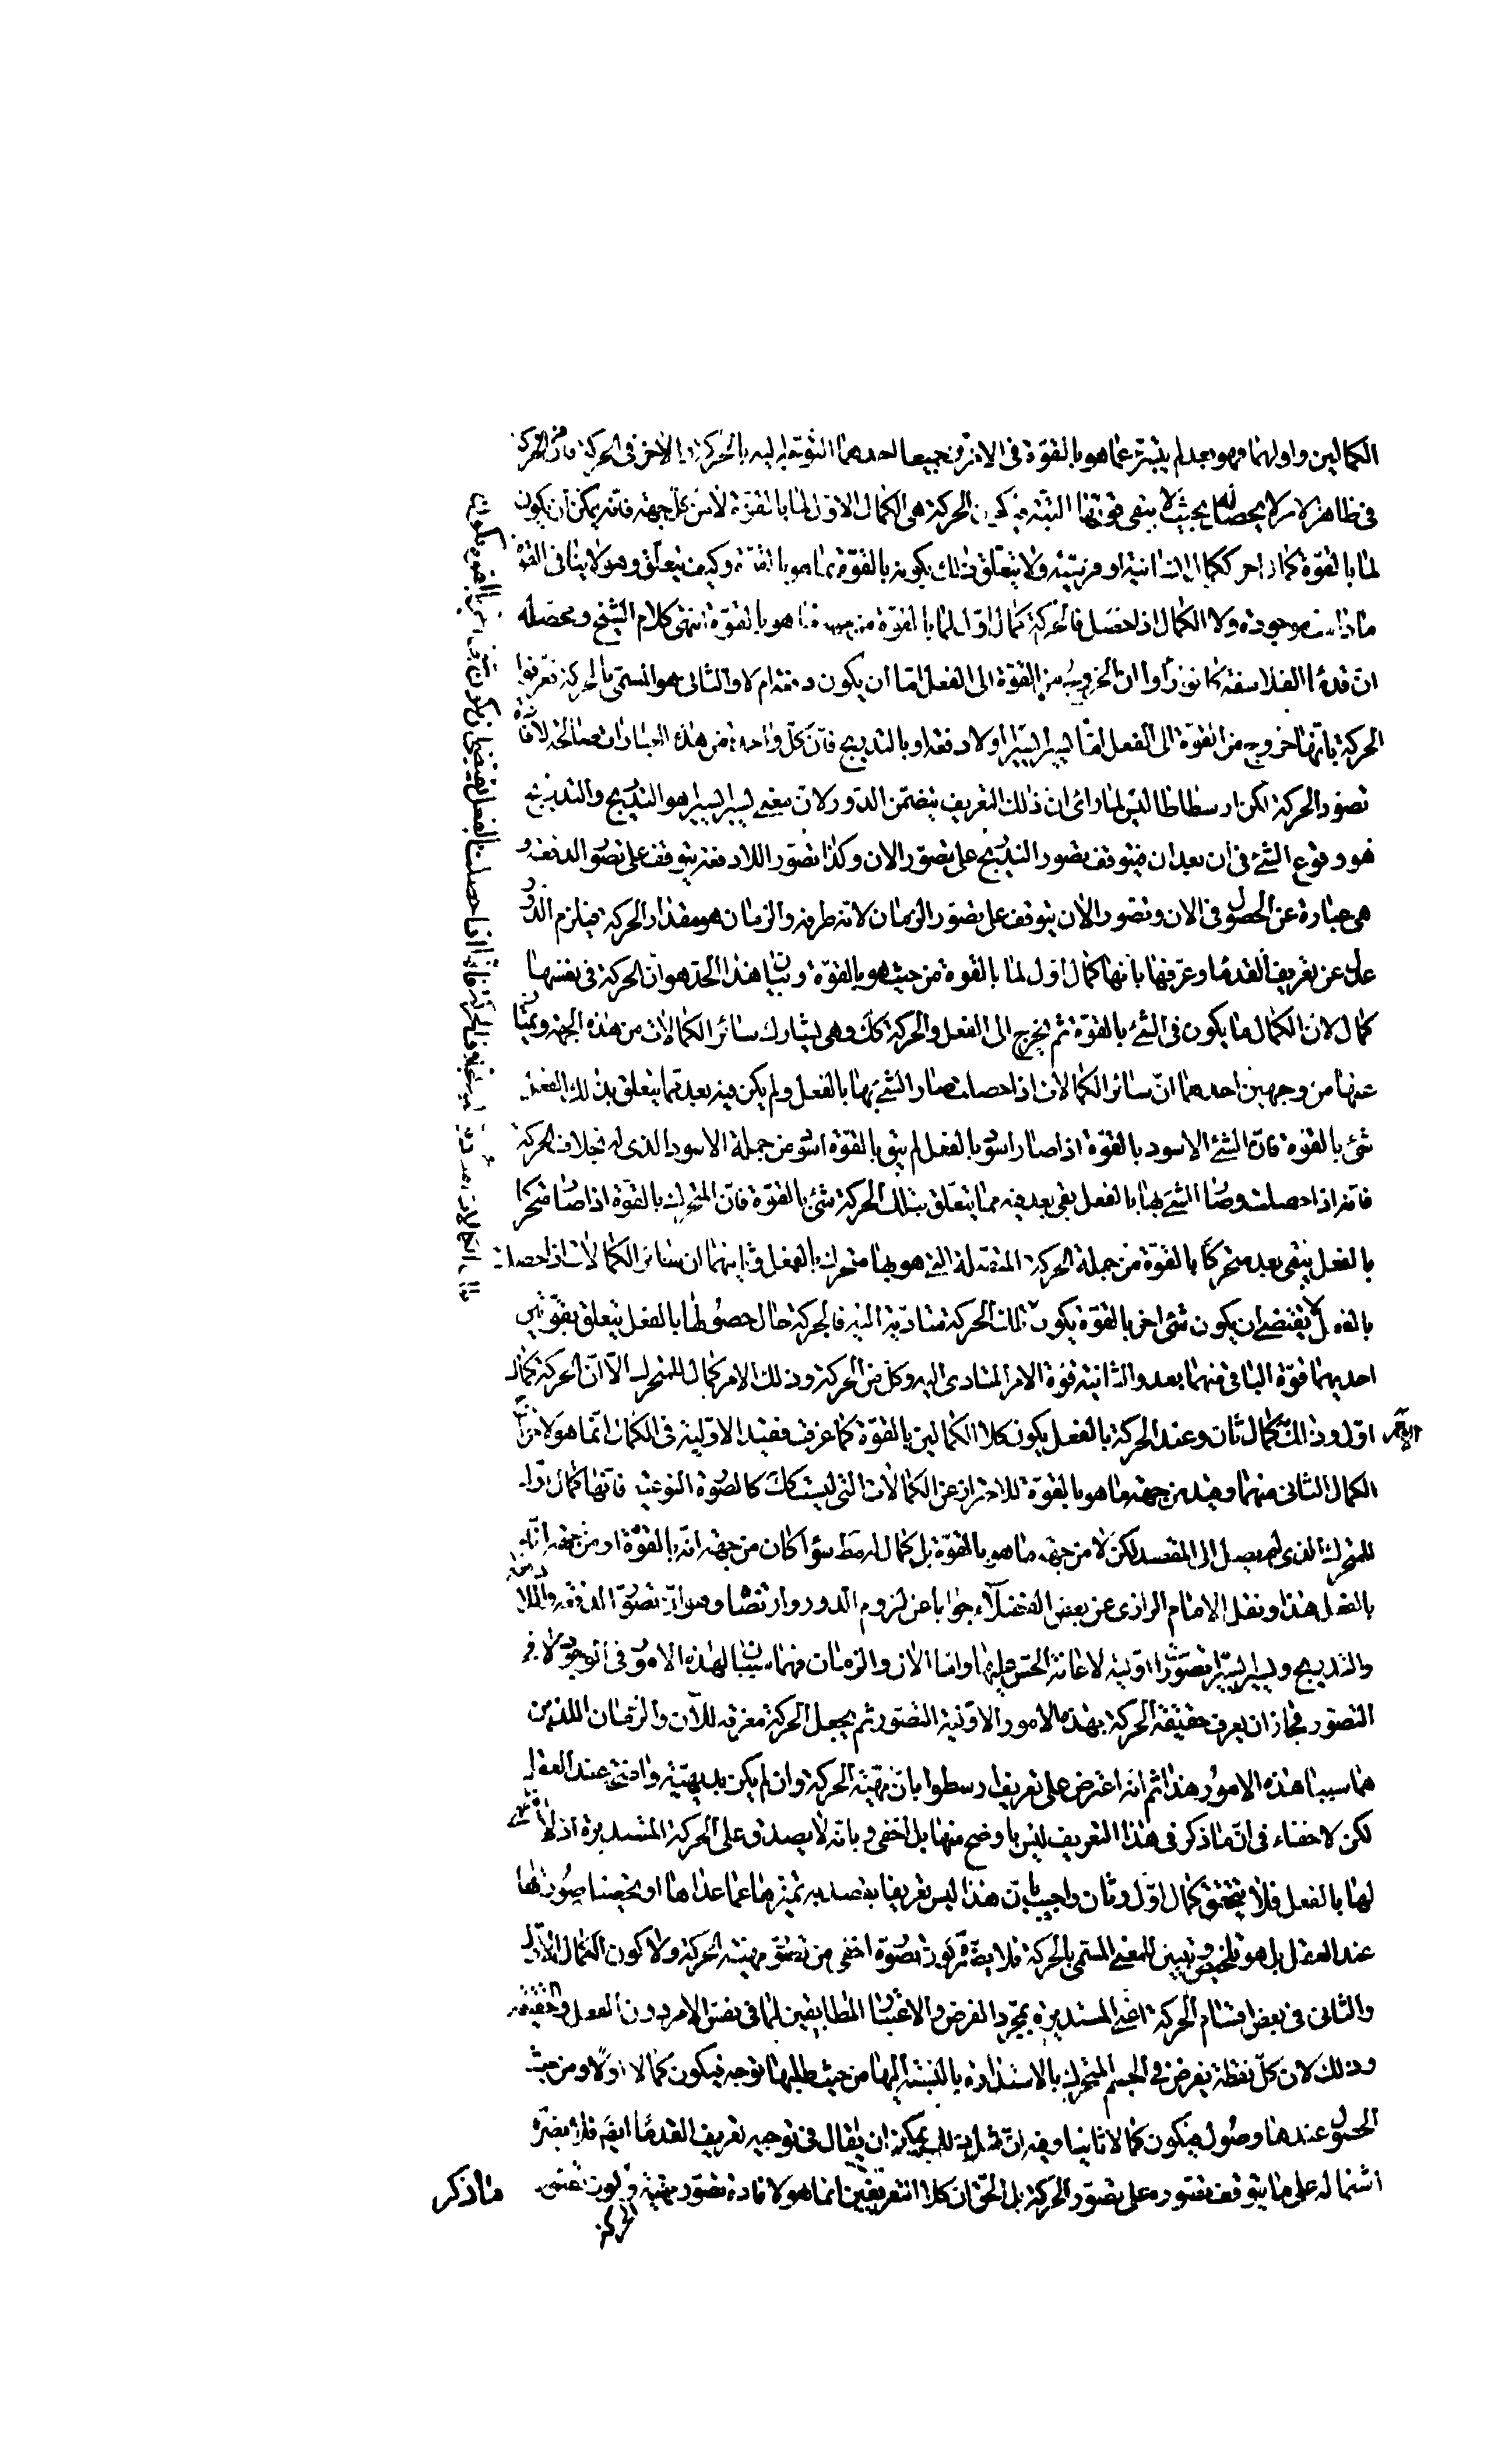 الكمالين واولهما فهو بعد لم يتبرّء عما هو بالقوة فى الامرين جميعا احدهما التوجه اليه بالحركة والاخر فى الحركة فان الحركة
فى ظاهر الامر لا يحصل بحيث لا يبقى قوتها البتة فيكون الحركة هى الكمال الاول لما بالقوة لا من كل جهة فانه يمكن ان يكون
لما بالقوة كمال اخر ككمال انسانية او فرسية ولا يتعلق ذلك بكونه بالقوة بما هو بالقوة وكيف يتعلق وهو لا ينافى القوة
ما دامت موجودة ولا الكمال اذا حصل فالحركة كمال اول لما بالقوة من جهة ما هو بالقوة انتهى كلام الشيخ ومحصله
ان قدماء الفلاسفة كانوا رأوا ان الخروج من القوة الى الفعل اما ان يكون دفعة ام لا والثانى هو المسمى بالحركة فعرفوا
الحركة بانها خروج من القوة الى الفعل اما يسيرا يسيرا او لا دفعة او بالتدريج فان كل واحدة من هذه العبارات صالحة لافادة
تصور الحركة لكن ارسطاطاليس لما رأى ان ذلك التعريف يتضمن الدور لان معنى يسيرا يسيرا هو التدريج والتدريج
هو وقوع الشئ فى ان بعد ان فيتوقف تصور التدريج على تصور الان وكذا تصور اللادفعة يتوقف على تصور الدفعة و
هى عبارة عن الحصول فى الان وتصور الان يتوقف على تصور الزمان لانه طرفه والزمان هو مقدار الحركة فيلزم الدور
عدل عن تعريف القدماء وعرفها بانها كمال اول لما بالقوة من حيث هو بالقوة وبيان هذا الحد هو ان الحركة فى نفسها
كمال لان الكمال ما يكون فى الشئ بالقوة ثم يخرج الى الفعل والحركة كك وهى يشارك سائر الكمالات من هذه الجهة ويمتاز
عنها من وجهين احدهما ان سائر الكمالات اذا حصلت صار الشئ بها بالفعل ولم يكن فيه بعد مما يتعلق بذلك الفعل
شئ بالقوة فان الشئ الاسود بالقوة اذا صار اسود بالفعل لم يبق بالقوة اسود من جملة الاسود الذى له بخلاف الحركة
فانه اذا حصلت وصار الشئ بها بالفعل بقى بعد فيه مما يتعلق بتلك الحركة شئ بالقوة فان المتحرك بالقوة اذا صار متحركا
بالفعل يبقى بعد متحركا بالقوة من جملة الحركة المتصلة التى هو بها متحرك بالفعل وثانيهما ان سائر الكمالات اذا حصلت
بالفعل لا يقتضى ان يكون شئ اخر بالقوة يكون تلك الحركة متادية اليه فالحركة حال حصولها بالفعل يتعلق بقوتين
احديهما قوة الباقى منهما بعد والثانية قوة الامر المتادى اليه وكل من الحركة وذلك الامر كمال للمتحرك الا ان الحركة كمال
اول وذلك الامر كمال ثان وعند الحركة بالفعل يكون كلا الكمالين بالقوة كما عرفت فقيد الاولية فى الكمال انما هو لاخراج
الكمال الثانى منهما وقيد من جهة ما هو بالقوة للاحتراز عن الكمالات التى ليست كك كالصورة النوعية فانها كمال اول
للمتحرك الذى لم يصل الى المقصد لكن لا من جهة ما هو بالقوة بل كمال له مط سواء كان من جهة انه بالقوة او من جهة انه
بالفعل هذا ونقل الامام الرازى عن بعض الفضلاء جوابا عن لزوم الدور وارتضاه وهو ان تصور الدفعة واللادفعة
والتدريج ويسيرا يسيرا تصورا اولية لاعانة الحس عليها واما الان والزمان فهما سببان لهذه الامور فى الوجود لا فى
التصور فجاز ان يعرف حقيقة الحركة بهذه الامور الاولية التصور ثم يجعل الحركة معرفة للآن والزمان اللذين
هما سببا هذه الامور هذا ثم انه اعترض على تعريف ارسطوا بان مهية الحركة وان لم يكن بديهية واضحة عند العقل
لكن لا خفاء فى ان ما ذكر فى هذا التعريف ليس باوضح منها بل اخفى وبانه لا يصدق على الحركة المستديرة اذ لا منتهى
لها بالفعل فلا يتحقق كمال اول وثان واجيب بان هذا ليس تعريفا يقصد به تميزها عما عداها او يحصل صورتها
عند العقل بل هو تلخيص وتبيين للمعنى المسمى بالحركة فلا يضره كون تصوره اخفى من تصور مهية الحركة ولا كون الكمال الاول
والثانى فى بعض اقسام الحركة اعنى المستديرة بمجرد الفرض والاعتبار المطابقين لما فى نفس الامر دون الفعل والحقيقة
وذلك لان كل نقطة يفرض فى الجسم المتحرك بالاستدارة بالنسبة اليها من حيث طلبها توجه فيكون كمالا اولا ومن حيث
الحصول عندها وصول فيكون كمالا ثانيا وفيه ان مثل ذلك يمكن ان يقال فى توجيه تعريف القدماء ايضا فلا يضره
اشتماله على ما يتوقف تصوره على تصور الحركة بل الحق ان كلا التعريفين انما هو لافادة تصور مهية الحركة وكون تصور
ما ذكر